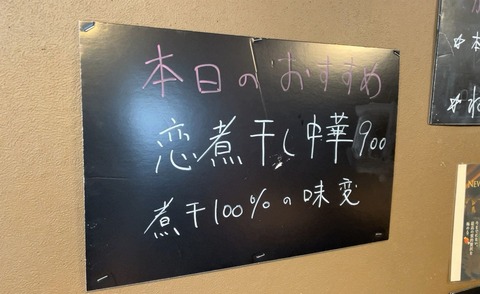 本日のおすすめ
恋煮干し中華900
煮干100%の味変
NEW